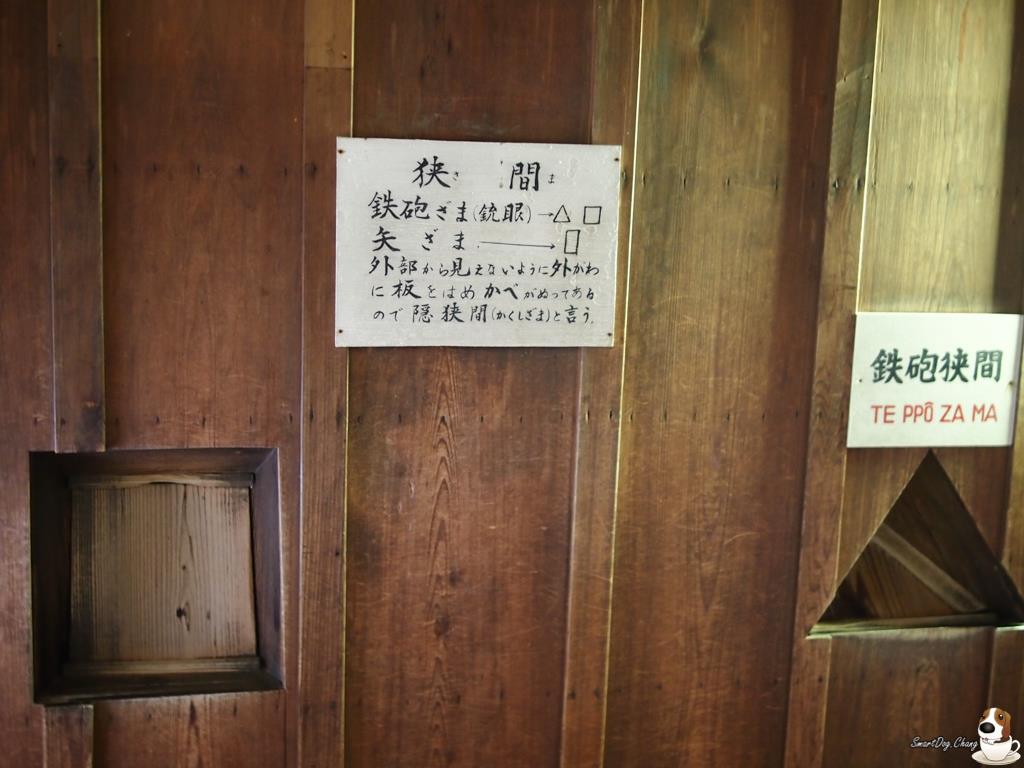 狭さ 間ま
鉄砲ざま(銃眼)→△ □
矢ざま→▯
外部から見えないように外がわ
に板をはめかべがぬってある
ので隠狭間(かくしざま)と言う。
鉄砲狭間
TE PPÔ ZA MA
SmartDog.Chang